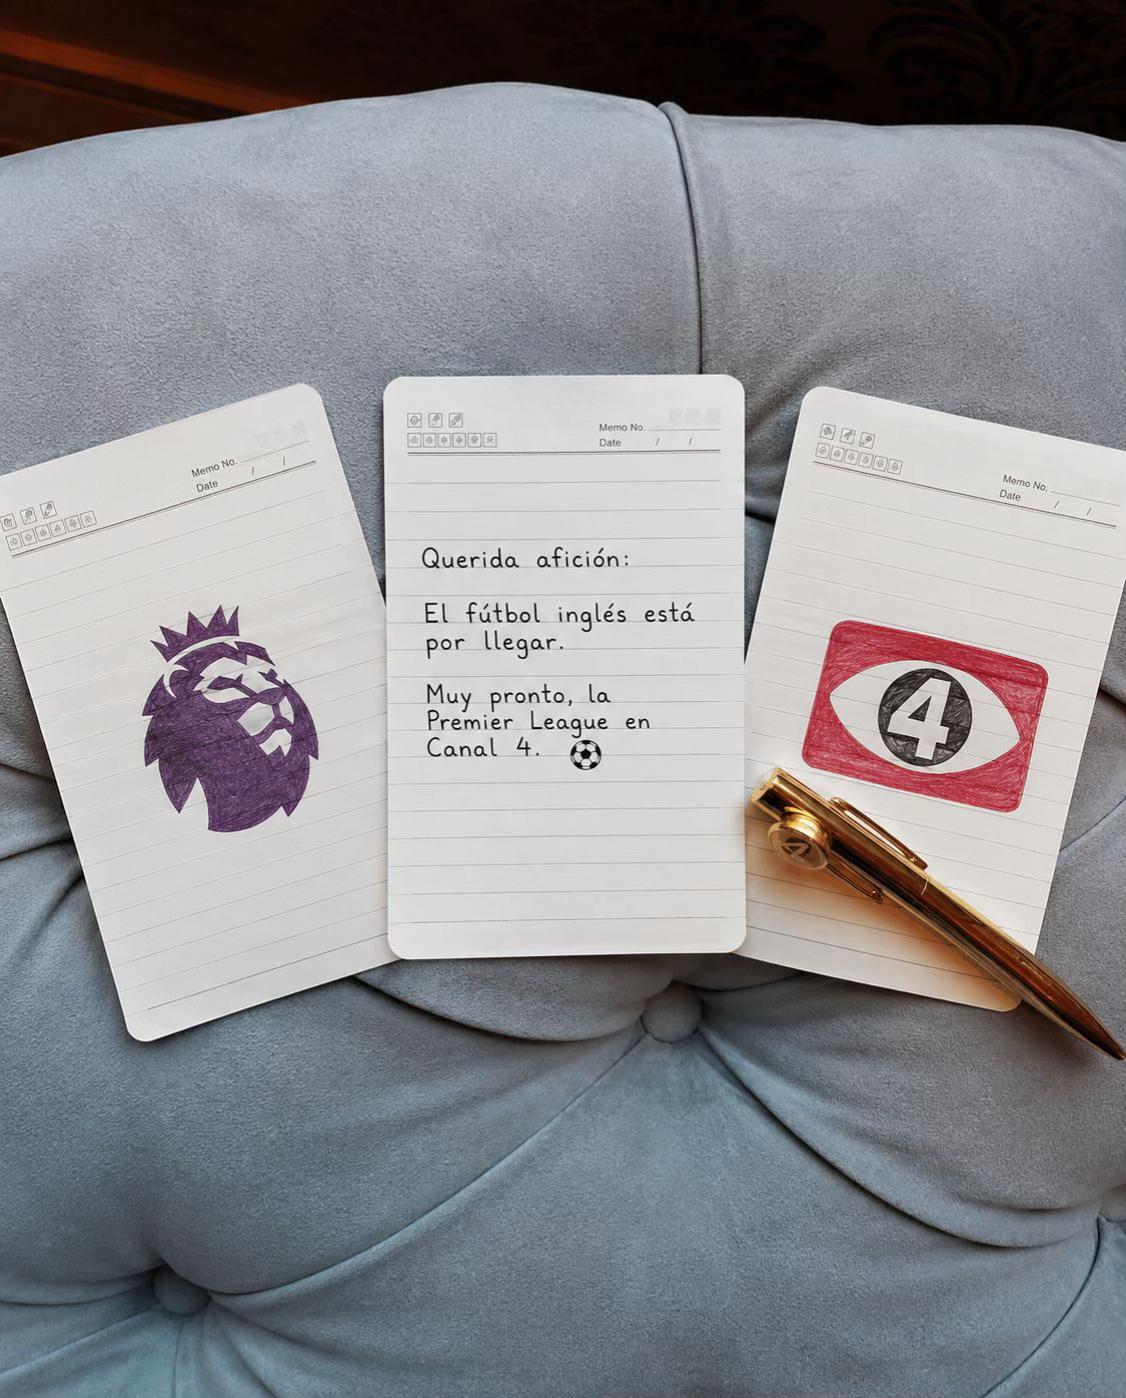 Memo No.
Date / /
Memo No.
Date / /
Querida afición:
El fútbol inglés está
por llegar.
Muy pronto, la
Premier League en
Canal 4.
Memo No.
Date / /
4